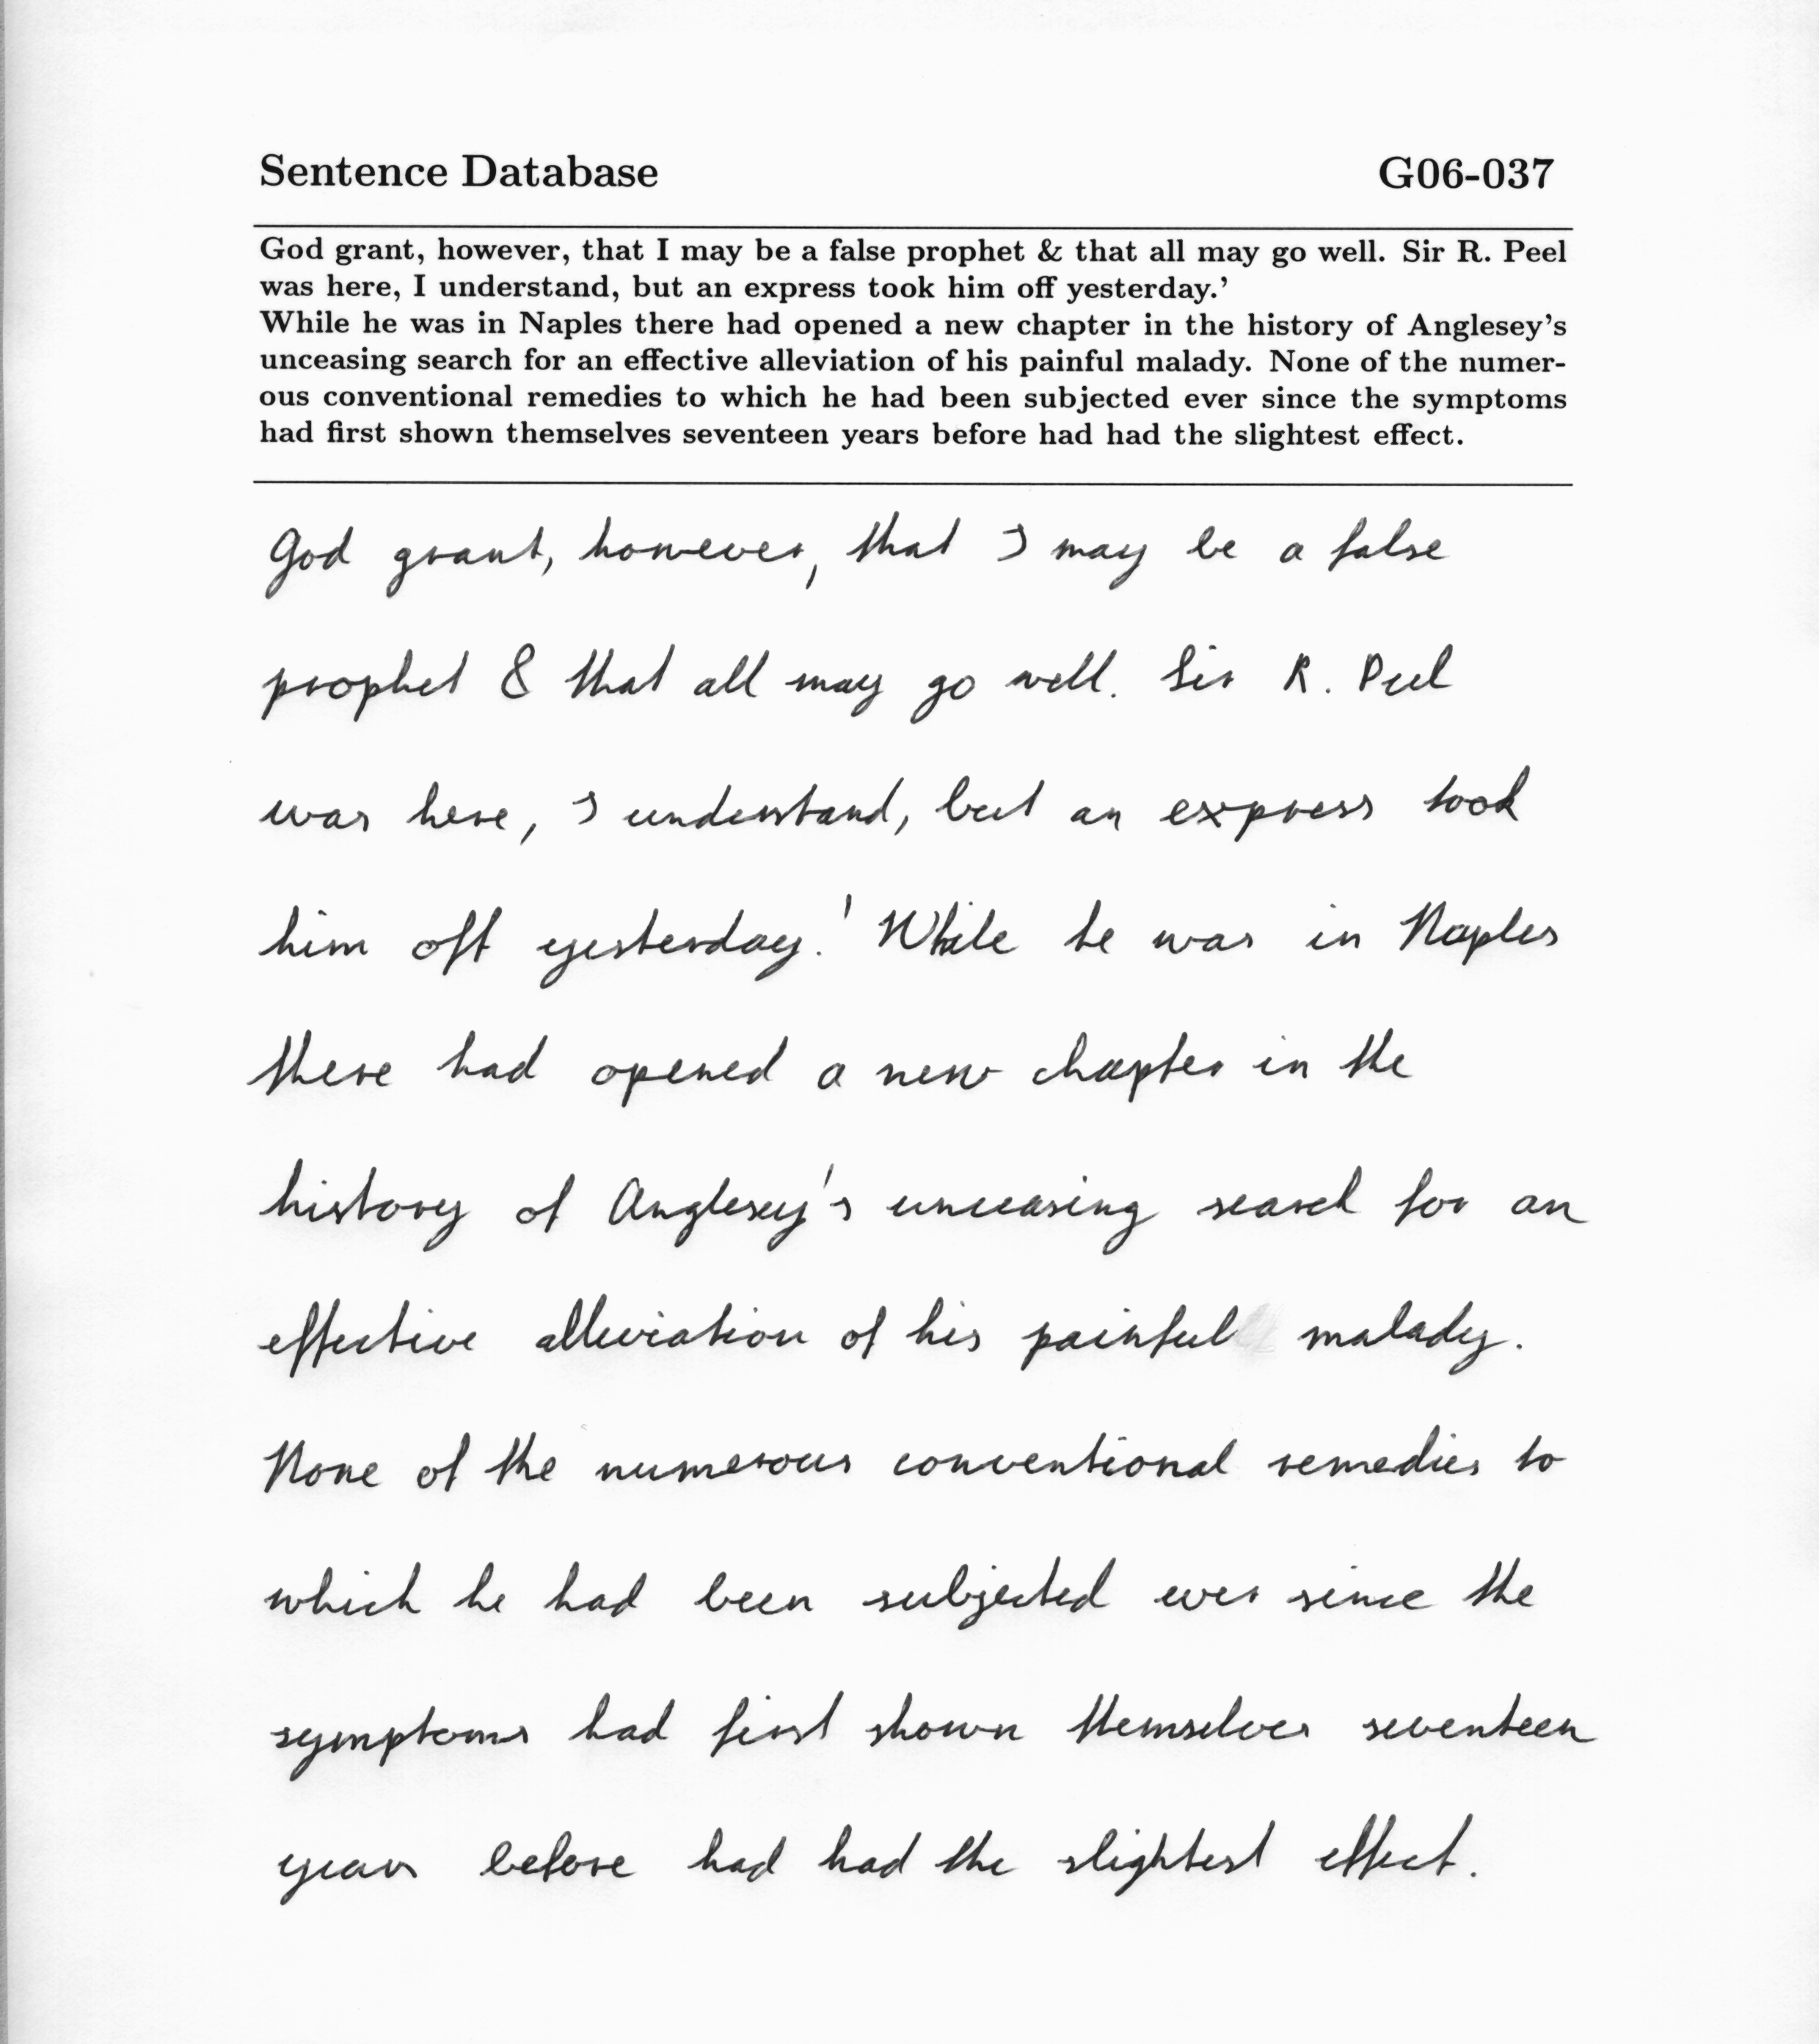 Sentence Database G06-037
God grant, however, that I may be a false prophet & that all may go well. Sir R. Peel
was here, I understand, but an express took him off yesterday.’
While he was in Naples there had opened a new chapter in the history of Anglesey’s
unceasing search for an effective alleviation of his painful malady. None of the numer-
ous conventional remedies to which he had been subjected ever since the symptoms
had first shown themselves seventeen years before had had the slightest effect.
God grant, however, that I may be a false
prophet & that all may go well. Sir R. Peel
was here, I understand, but an express took
him off yesterday.' While he was in Naples
there had opened a new chapter in the
history of Anglesey's unceasing search for an
effective alleviation of his painful malady.
None of the numerous conventional remedies to
which he had been subjected ever since the
symptoms had first shown themselves seventeen
years before had had the slightest effect.